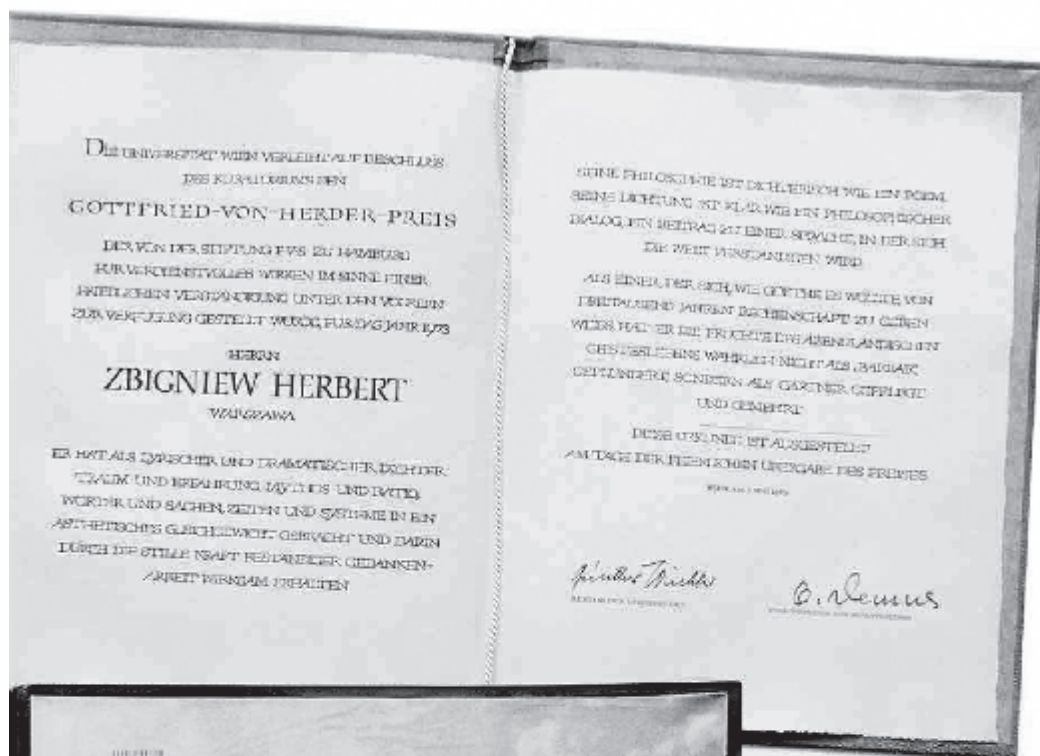 DIE UNIVERSITÄT WIEN VERLEIHT AUF BESCHLUSS
DES KURATORIUMS DEN
GOTTFRIED-VON-HERDER-PREIS
DER VON DER STIFTUNG F.V.S. ZU HAMBURG
FÜR VERDIENSTVOLLES WIRKEN IM SINNE EINER
FRIEDLICHEN VERSTÄNDIGUNG UNTER DEN VÖLKERN
ZUR VERFÜGUNG GESTELLT WURDE, FÜR DAS JAHR 1973
HERRN
ZBIGNIEW HERBERT
WARSZAWA
ER HAT ALS LYRISCHER UND DRAMATISCHER DICHTER
TRAUM UND ERFAHRUNG, MYTHOS UND RATIO,
WÖRTER UND SACHEN, ZEITEN UND SYSTEME IN EIN
ÄSTHETISCHES GLEICHGEWICHT GEBRACHT UND DARIN
DURCH DIE STILLE KRAFT BESTÄNDIGER GEDANKEN-
ARBEIT WIRKSAM ERHALTEN
SEINE PHILOSOPHIE IST DICHTERISCH WIE EIN POEM,
SEINE DICHTUNG IST KLAR WIE EIN PHILOSOPHISCHER
DIALOG, EIN BEITRAG ZU EINER SPRACHE, IN DER SICH
DIE WELT VERSTÄNDIGEN WIRD
ALS EINER, DER SICH, WIE GOETHE ES WOLLTE, VON
DREITAUSEND JAHREN RECHENSCHAFT ZU GEBEN
WEISS, HAT ER DIE FRÜCHTE DES ABENDLÄNDISCHEN
GEISTESLEBENS WAHRLICH NICHT ALS „BARBAR“
GEPLÜNDERT, SONDERN ALS GÄRTNER GEPFLEGT
UND GEMEHRT
DIESE URKUNDE IST AUSGESTELLT
AM TAGE DER FEIERLICHEN ÜBERGABE DES PREISES
O. Demus